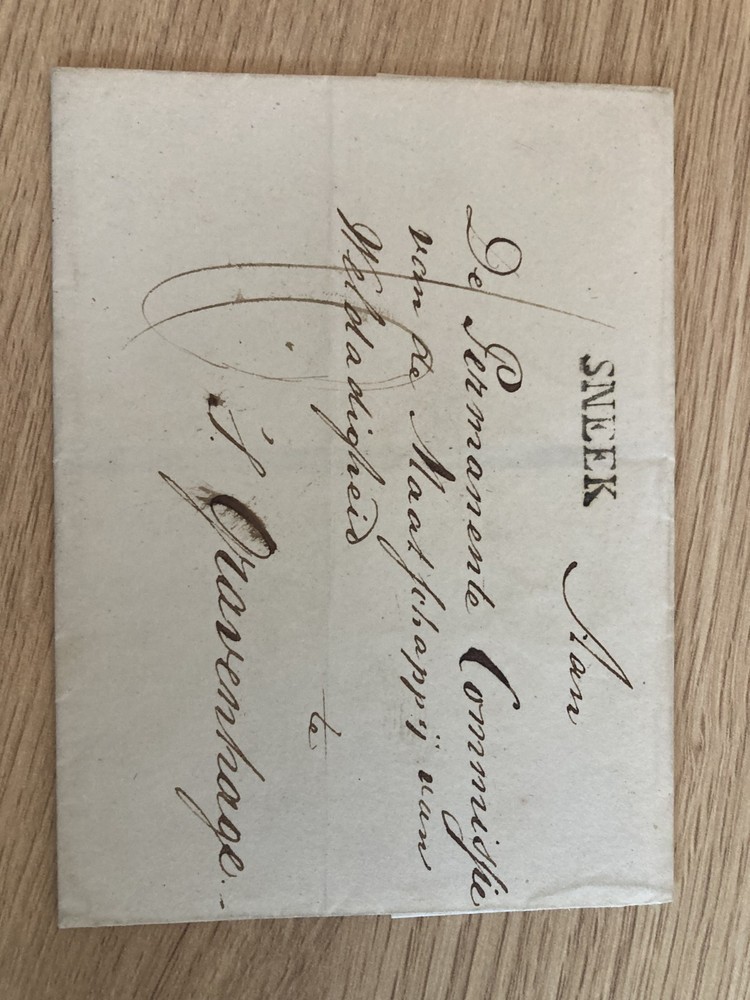 SNEEK
Aan
De Permanente Commissie
van de Maatschappij van
Weldadigheid
te
S. Gravenhage.